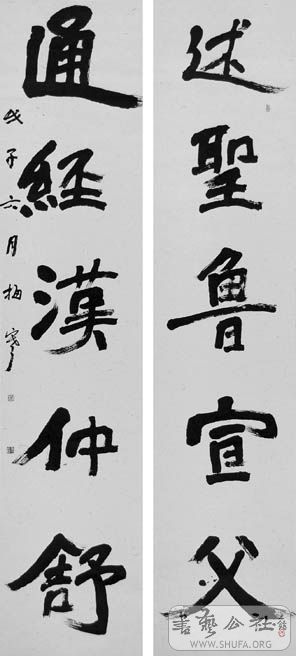 述聖鲁宣父
通經漢仲舒
戊子六月梅寒
書藝公社
WWW.SHUFA.ORG